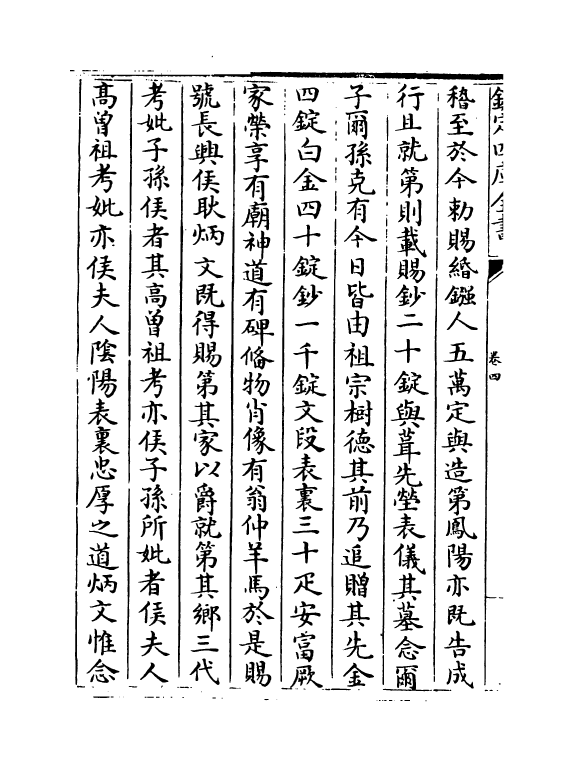 欽定四庫全書
卷四
穡至於今勅賜緡鏹人五萬定與造第鳳陽亦既告成
行且就第則載賜鈔二十錠與葺先塋表儀其墓念爾
子爾孫克有今日皆由祖宗樹德其前乃追贈其先金
四錠白金四十錠鈔一千錠文段表裏三十疋安富厥
家榮享有廟神道有碑俻物肖像有翁仲羊馬於是賜
號長興侯耿炳文既得賜第其家以爵就第其鄉三代
考妣子孫侯者其高曾祖考亦侯子孫所妣者侯夫人
高曾祖考妣亦侯夫人陰陽表裏忠厚之道炳文惟念